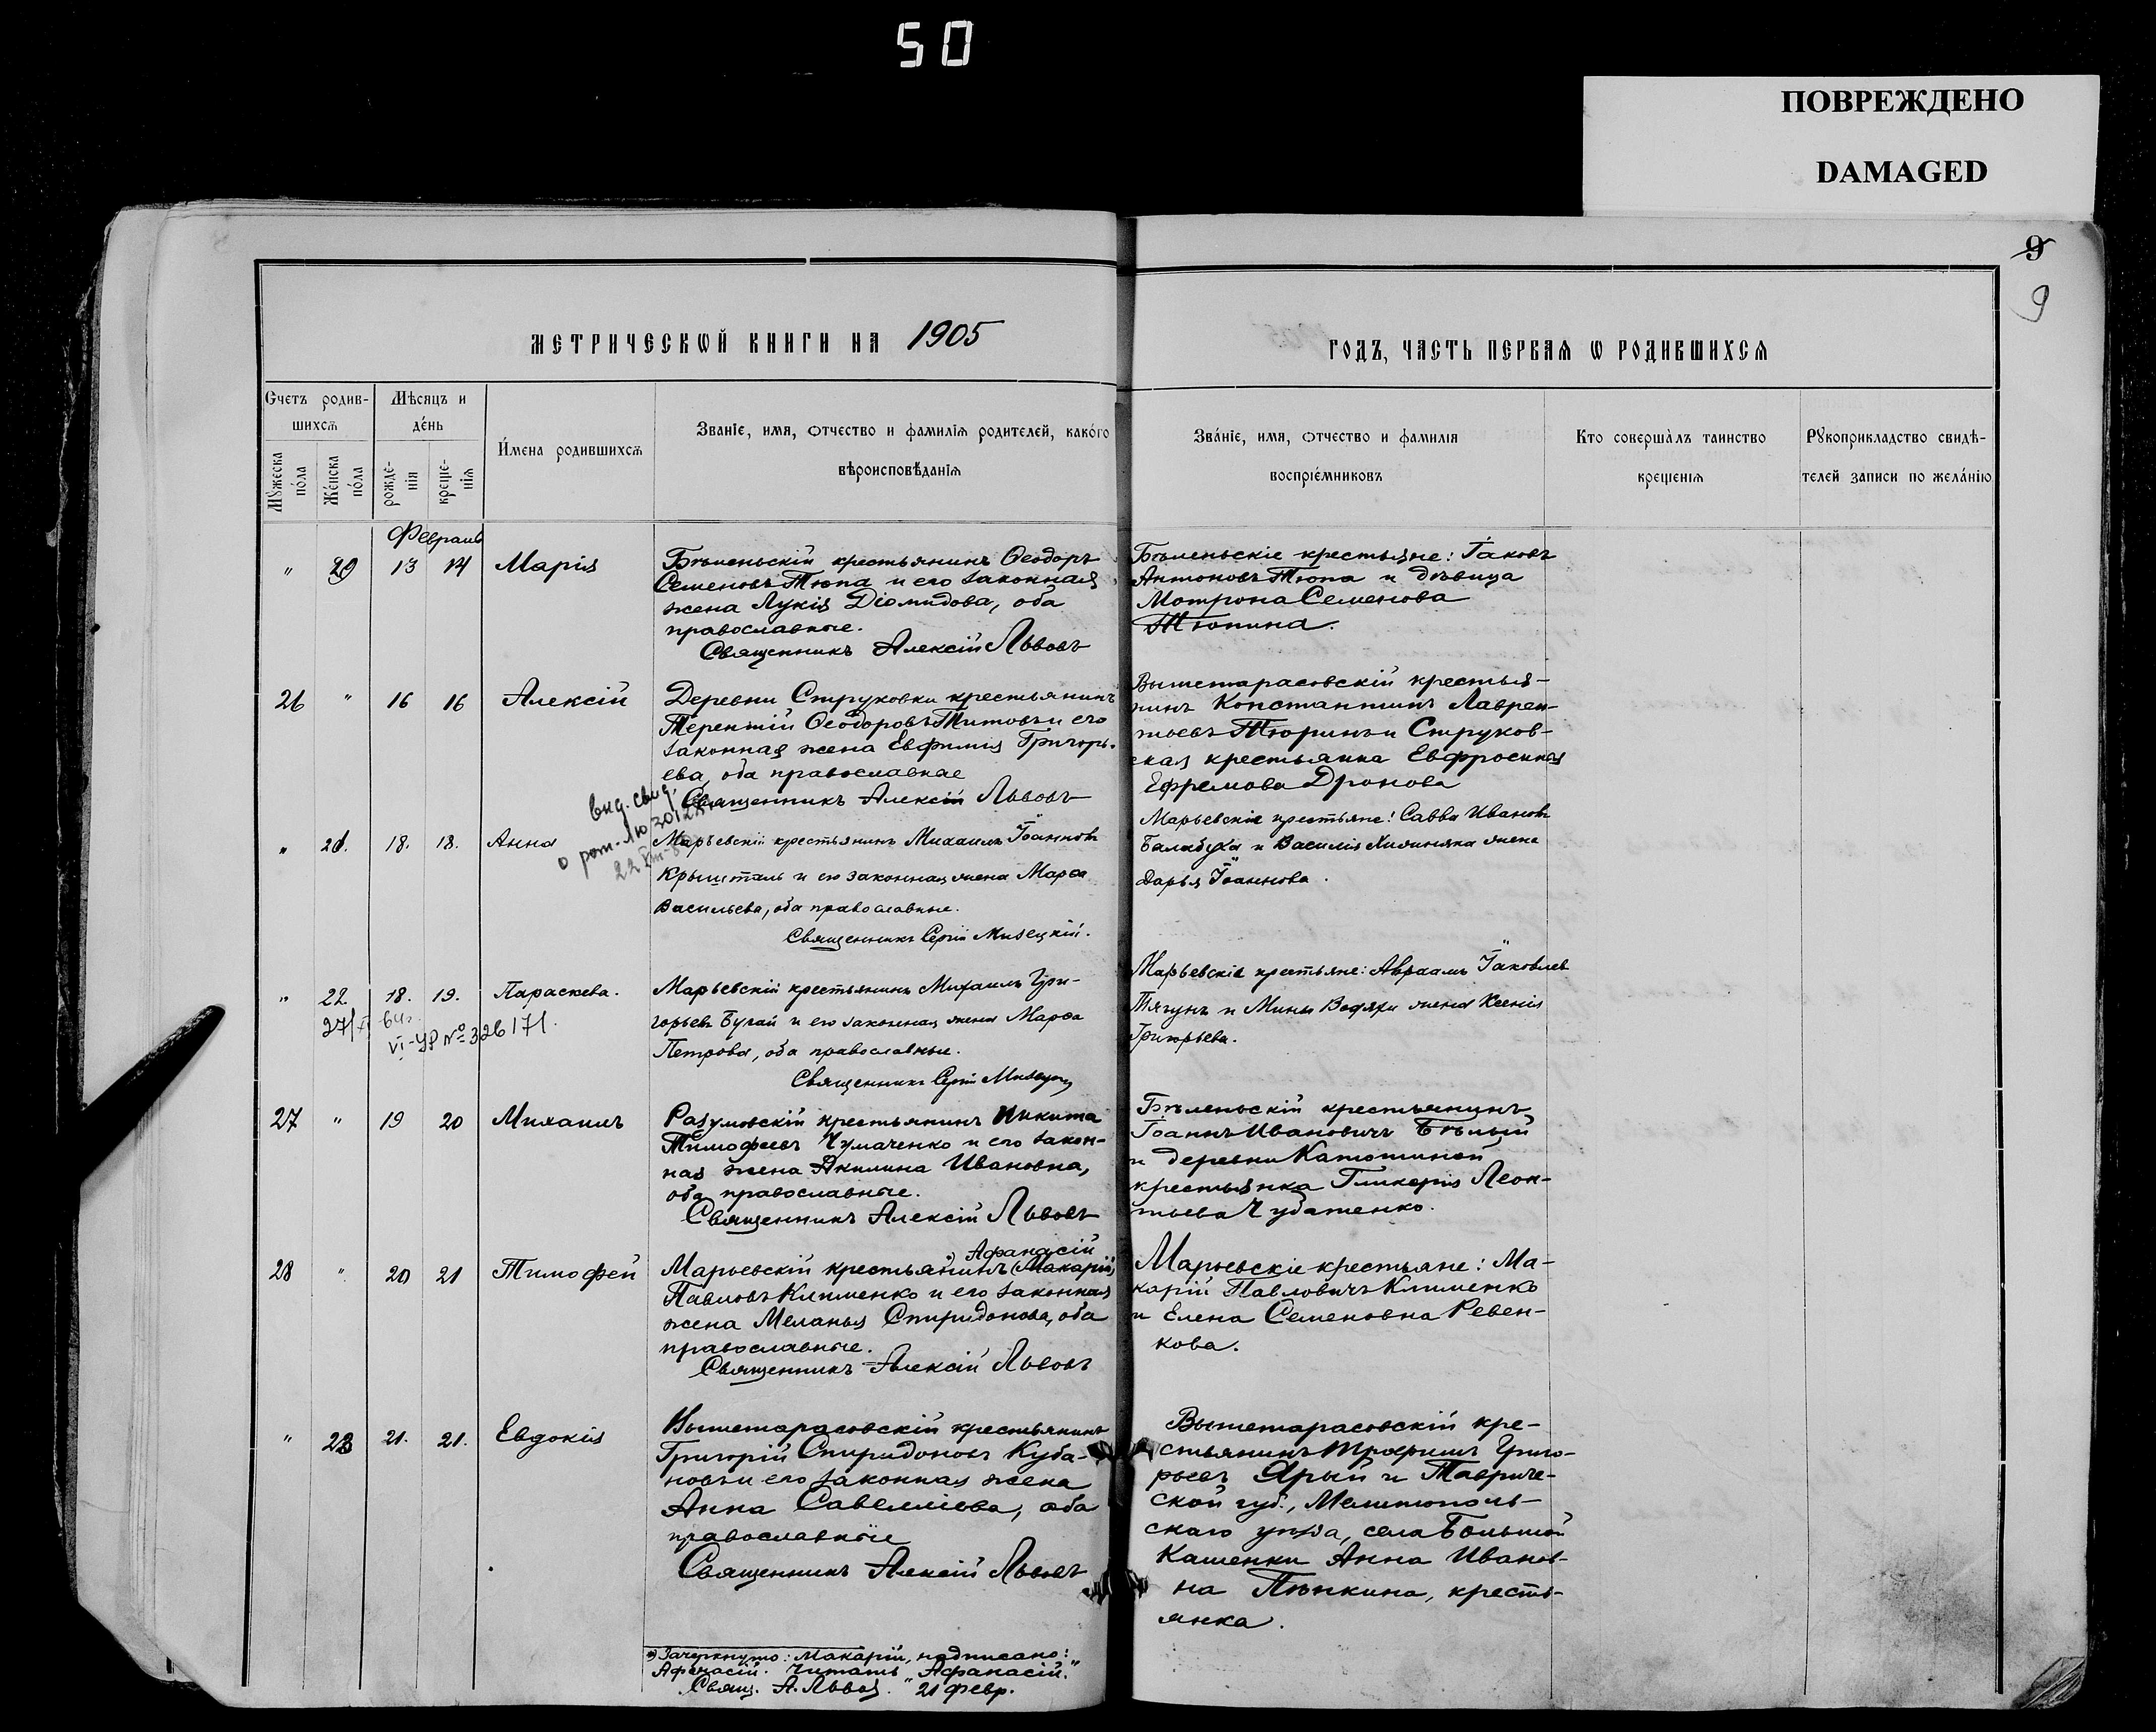 50
ПОВРЕЖДЕНО
DAMAGED
9
9
МЕТРИЧЕСКѠЙ КНИГИ НА 1905
ГОДЪ, ЧАСТЬ ПЕРВАѦ Ѡ РОДИВШИХСѦ
Счетъ родив-
шихсѧ
Мꙋжеска
пола
Женска
пола
Мѣсяцъ и
день
рожде-
нія
креще-
нія
Имена родившихсѧ
Званіе, имя, отчество и фамилія родителей, какого
вѣроисповѣданія
Званіе, имя, отчество и фамилія
воспріемниковъ
Кто совершалъ таинство
крещенія
Рꙋкоприкладство свидѣ-
телей записи по желанію
Февраль
" 20 13 14 Марія
Бѣленьскій крестьянинъ Ѳеодоръ
Семеновъ Тюпа и его законная
жена Лукія Діомидова, оба
православные.
Священникъ Алексій Львовъ
Бѣленьскіе крестьяне: Іаковъ
Антоновъ Тюпа и дѣвица
Мотрона Семенова
Тюпина.
26 " 16 16 Алексій
Деревни Струковки крестьянинъ
Терентій Ѳеодоровъ Титовъ и его
законная жена Евфимія Григорь-
ева, оба православные
Священникъ Алексій Львовъ
Вышетарасовскій крестья-
нинъ Константинъ Лаврен-
тьевъ Тюринъ и Струков-
ская крестьянка Евфросинія
Ефремова Дронова
Выд. свид.
о рож.
" 21. 18. 18. Анна
Марьевскій крестьянинъ Михаилъ Іоанновъ
Крышталь и его законная жена Марѳа
Васильева, оба православные.
Священникъ Сергій Мизецкій.
Марьевскіе крестьяне: Савва Ивановъ
Балабуха и Василія жена
Дарья Іоаннова.
" 22 18. 19. Параскева.
VI-УР № 326171.
Марьевскій крестьянинъ Михаилъ Гри-
горьевъ Бугай и его законная жена Марѳа
Петрова, оба православные.
Священникъ Сергій Мизецкій
Марьевскіе крестьяне: Авраамъ Іаковлевъ
Тягунъ и Мины Водяхи жена Ксенія
Григорьева.
27 " 19 20 Михаилъ
Разумовскій крестьянинъ Никита
Тимофеевъ Чумаченко и его закон-
ная жена Акилина Ивановна,
оба православные.
Священникъ Алексій Львовъ
Бѣленьскій крестьянинъ
Іоаннъ Ивановичъ Бѣлый
и деревни Катюшиной
крестьянка Гликерія Леон-
тьева Чубатенко.
28 " 20 21 Тимофей
Афанасій
Марьевскій крестьянинъ (Макарій)
Павловъ Клименко и его законная
жена Меланья Спиридонова, оба
православные.
Священникъ Алексій Львовъ
Марьевскіе крестьяне: Ма-
карій Павловичъ Клименко
и Елена Семеновна Ревен-
кова.
" 23 21. 21. Евдокія
Вышетарасовскій крестьянинъ
Григорій Спиридоновъ Куба-
новъ и его законная жена
Анна Савелліева, оба
православные
Священникъ Алексій Львовъ
Вышетарасовскій кре-
стьянинъ Трофимъ Григо-
рьевъ Ярый и Тавриче-
ской губ., Мелитополь-
скаго уѣзда, села Большой
Каменки Анна Иванов-
на Пѣнкина, кресть-
янка.
*) Зачеркнуто: Макарій, надписано:
Афанасій. Читать "Афанасій."
Свящ. А. Львовъ. 21 февр.